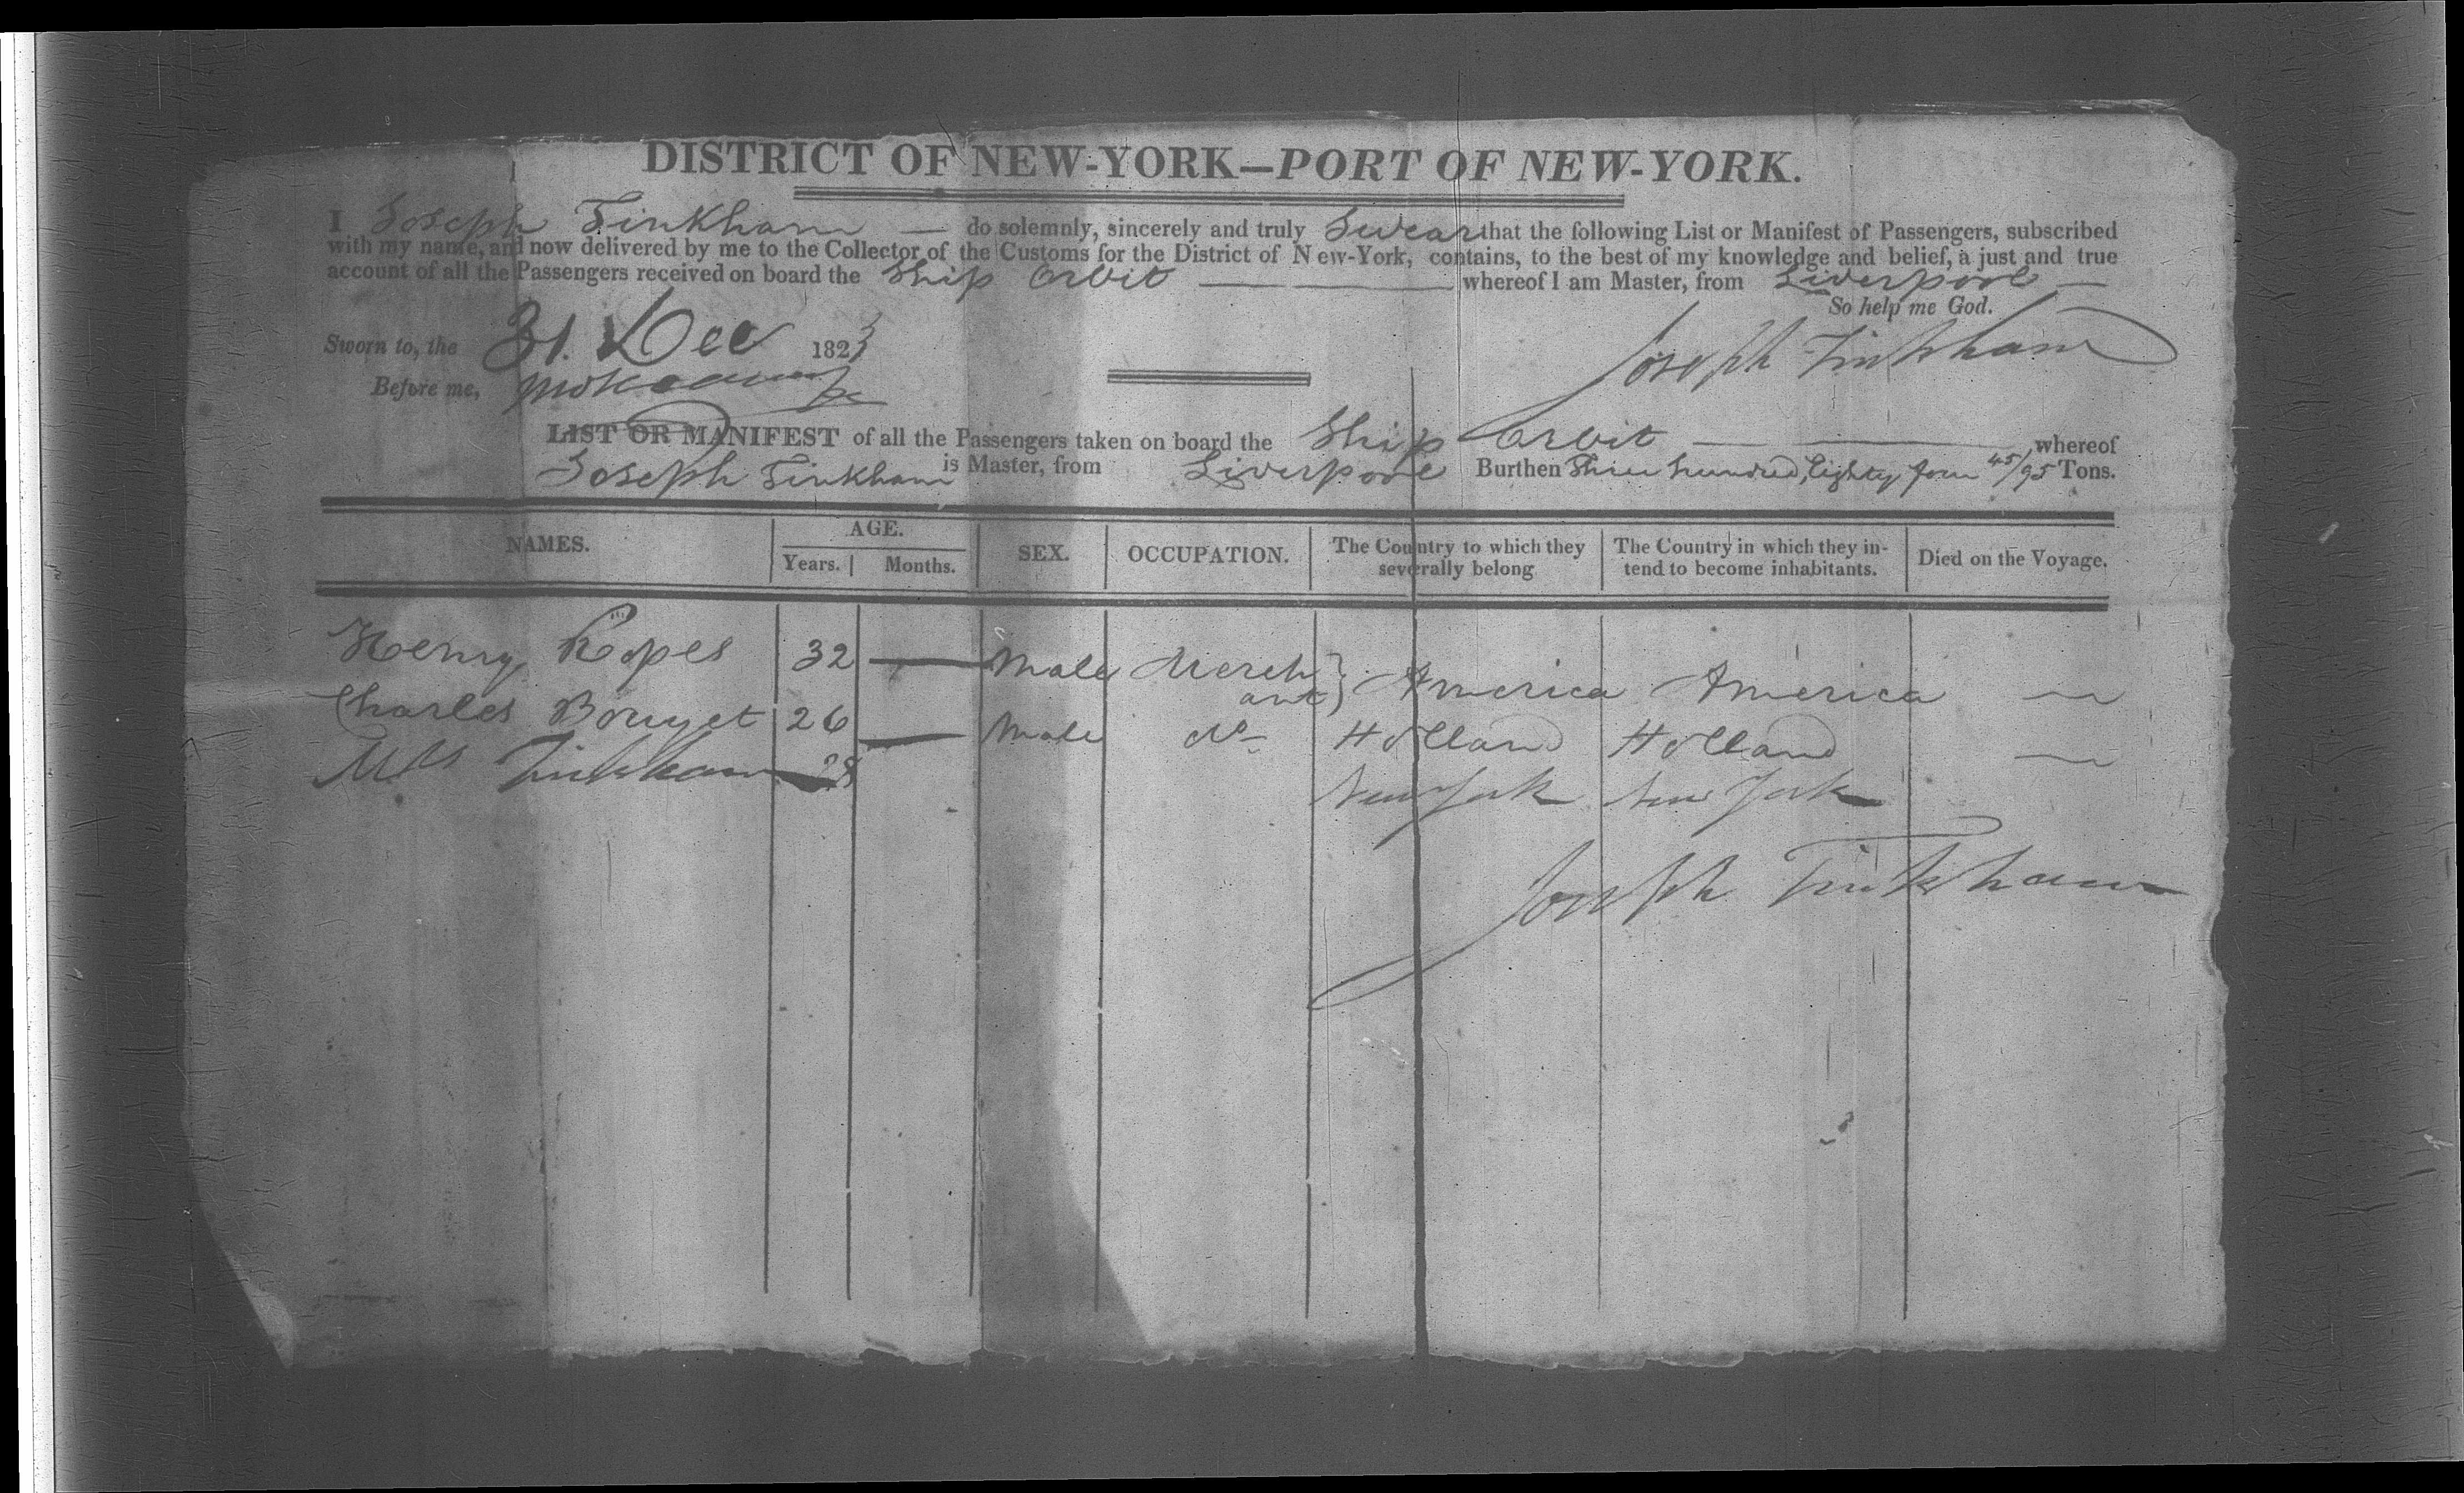 DISTRICT OF NEW-YORK—PORT OF NEW-YORK.
I Joseph Tinkham — do solemnly, sincerely and truly Swear that the following List or Manifest of Passengers, subscribed
with my name, and now delivered by me to the Collector of the Customs for the District of New-York, contains, to the best of my knowledge and belief, a just and true
account of all the Passengers received on board the Ship Orbit — — whereof I am Master, from Liverpool —
So help me God.
Sworn to, the 31. Dec 1823
Joseph Tinkham
Before me,
LIST OR MANIFEST of all the Passengers taken on board the Ship Orbit — — whereof
Joseph Tinkham is Master, from Liverpool Burthen Three hundred, Eighty four 45/95 Tons.
NAMES. AGE. SEX. OCCUPATION. The Country to which they severally belong The Country in which they intend to become inhabitants. Died on the Voyage.
Years. Months.
Henry Ropes 32 — Male Merchant } America America —
Charles Bouget 26 — Male do Holland Holland —
Mrs Tinkham 28 New York New York
Joseph Tinkham